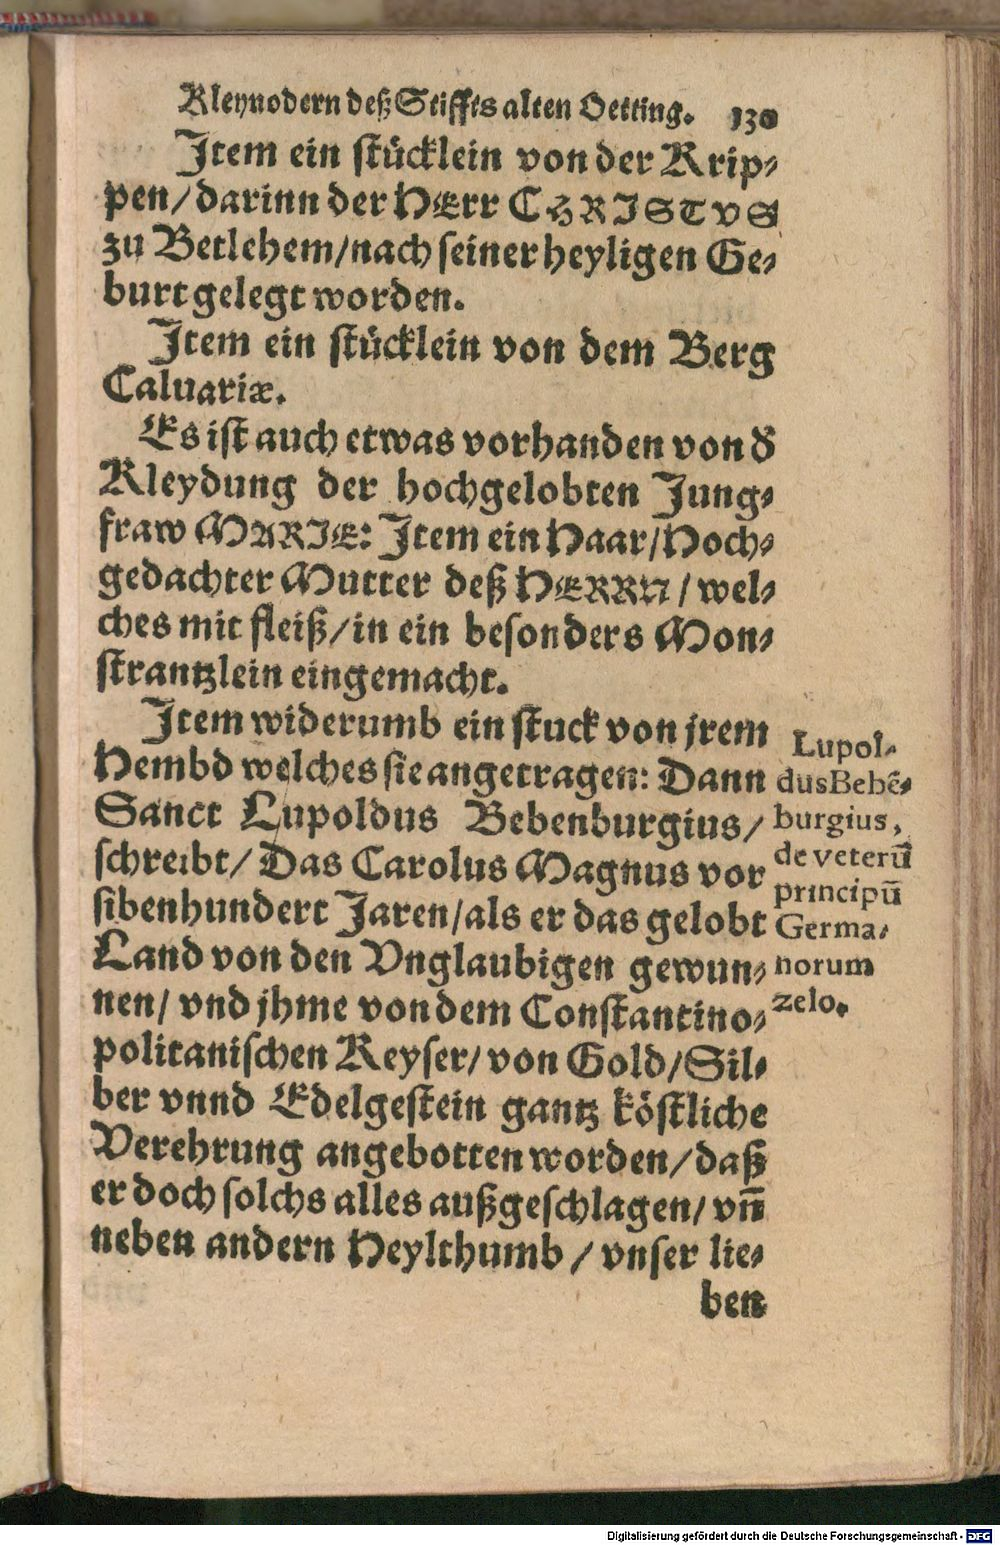 Kleynodern deß Stiffts alten Oetting. 130
Item ein stücklein von der Krip⸗
pen/darinn der HErr CHRISTVS
zu Betlehem/nach seiner heyligen Ge⸗
burt gelegt worden.
Item ein stücklein von dem Berg
Caluariæ.
Es ist auch etwas vorhanden von d̕
Kleydung der hochgelobten Jung⸗
fraw MARIE: Item ein Haar/Hoch⸗
gedachter Mutter deß HERRN/wel⸗
ches mit fleiß/in ein besonders Mon⸗
strantzlein eingemacht.
Item widerumb ein stuck von jrem
Hembd welches sie angetragen: Dann
Sanct Lupoldus Bebenburgius/
schreibt/Das Carolus Magnus vor
sibenhundert Jaren/als er das gelobt
Land von den Vnglaubigen gewun⸗
nen/vnd jhme von dem Constantino⸗
politanischen Keyser/von Gold/Sil⸗
ber vnnd Edelgestein gantz köstliche
Verehrung angebotten worden/daß
er doch solchs alles außgeschlagen/vñ
neben andern Heylthumb/vnser lie⸗
ben
Lupol⸗
dus Bebē⸗
burgius,
de veterū
principū
Germa⸗
norum
zelo.
Digitalisierung gefördert durch die Deutsche Forschungsgemeinschaft - DFG